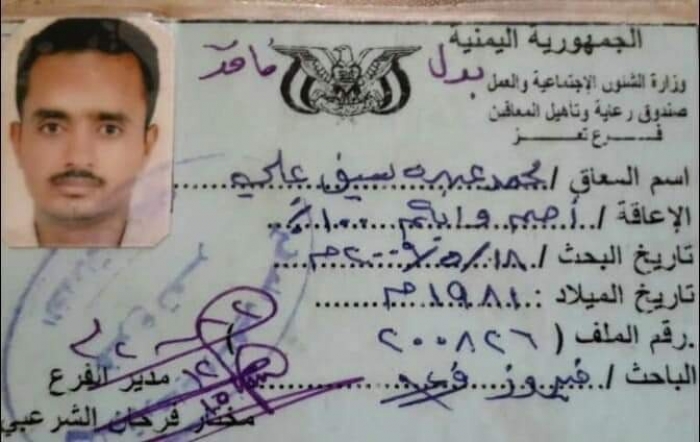 الجمهورية اليمنية
وزارة الشئون الإجتماعية والعمل
صندوق رعاية وتأهيل المعاقين
فرع تعز
بدل فاقد
اسم المعاق / محمد عبده سيف علي
الإعاقة / أصم وأبكم ١٠٠٪
تاريخ البحث / ١٨/٥/٢٠٠٩م
تاريخ الميلاد : ١٩٨١م
رقم الملف ( ٢٠٠٨٢٦ )
الباحث / فيروز
مدير الفرع
مختار فرحان الشرعبي